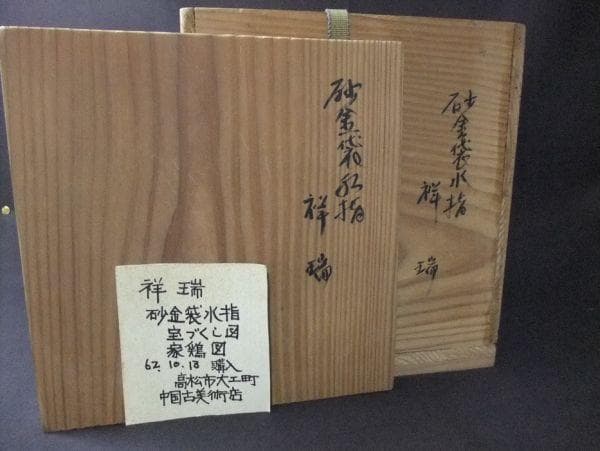 砂金袋水指
祥瑞
砂金袋水指
祥瑞
祥瑞
砂金袋水指
宝づくし図
家鶏図
62.10.18 購入
高松市大工町
中国古美術店